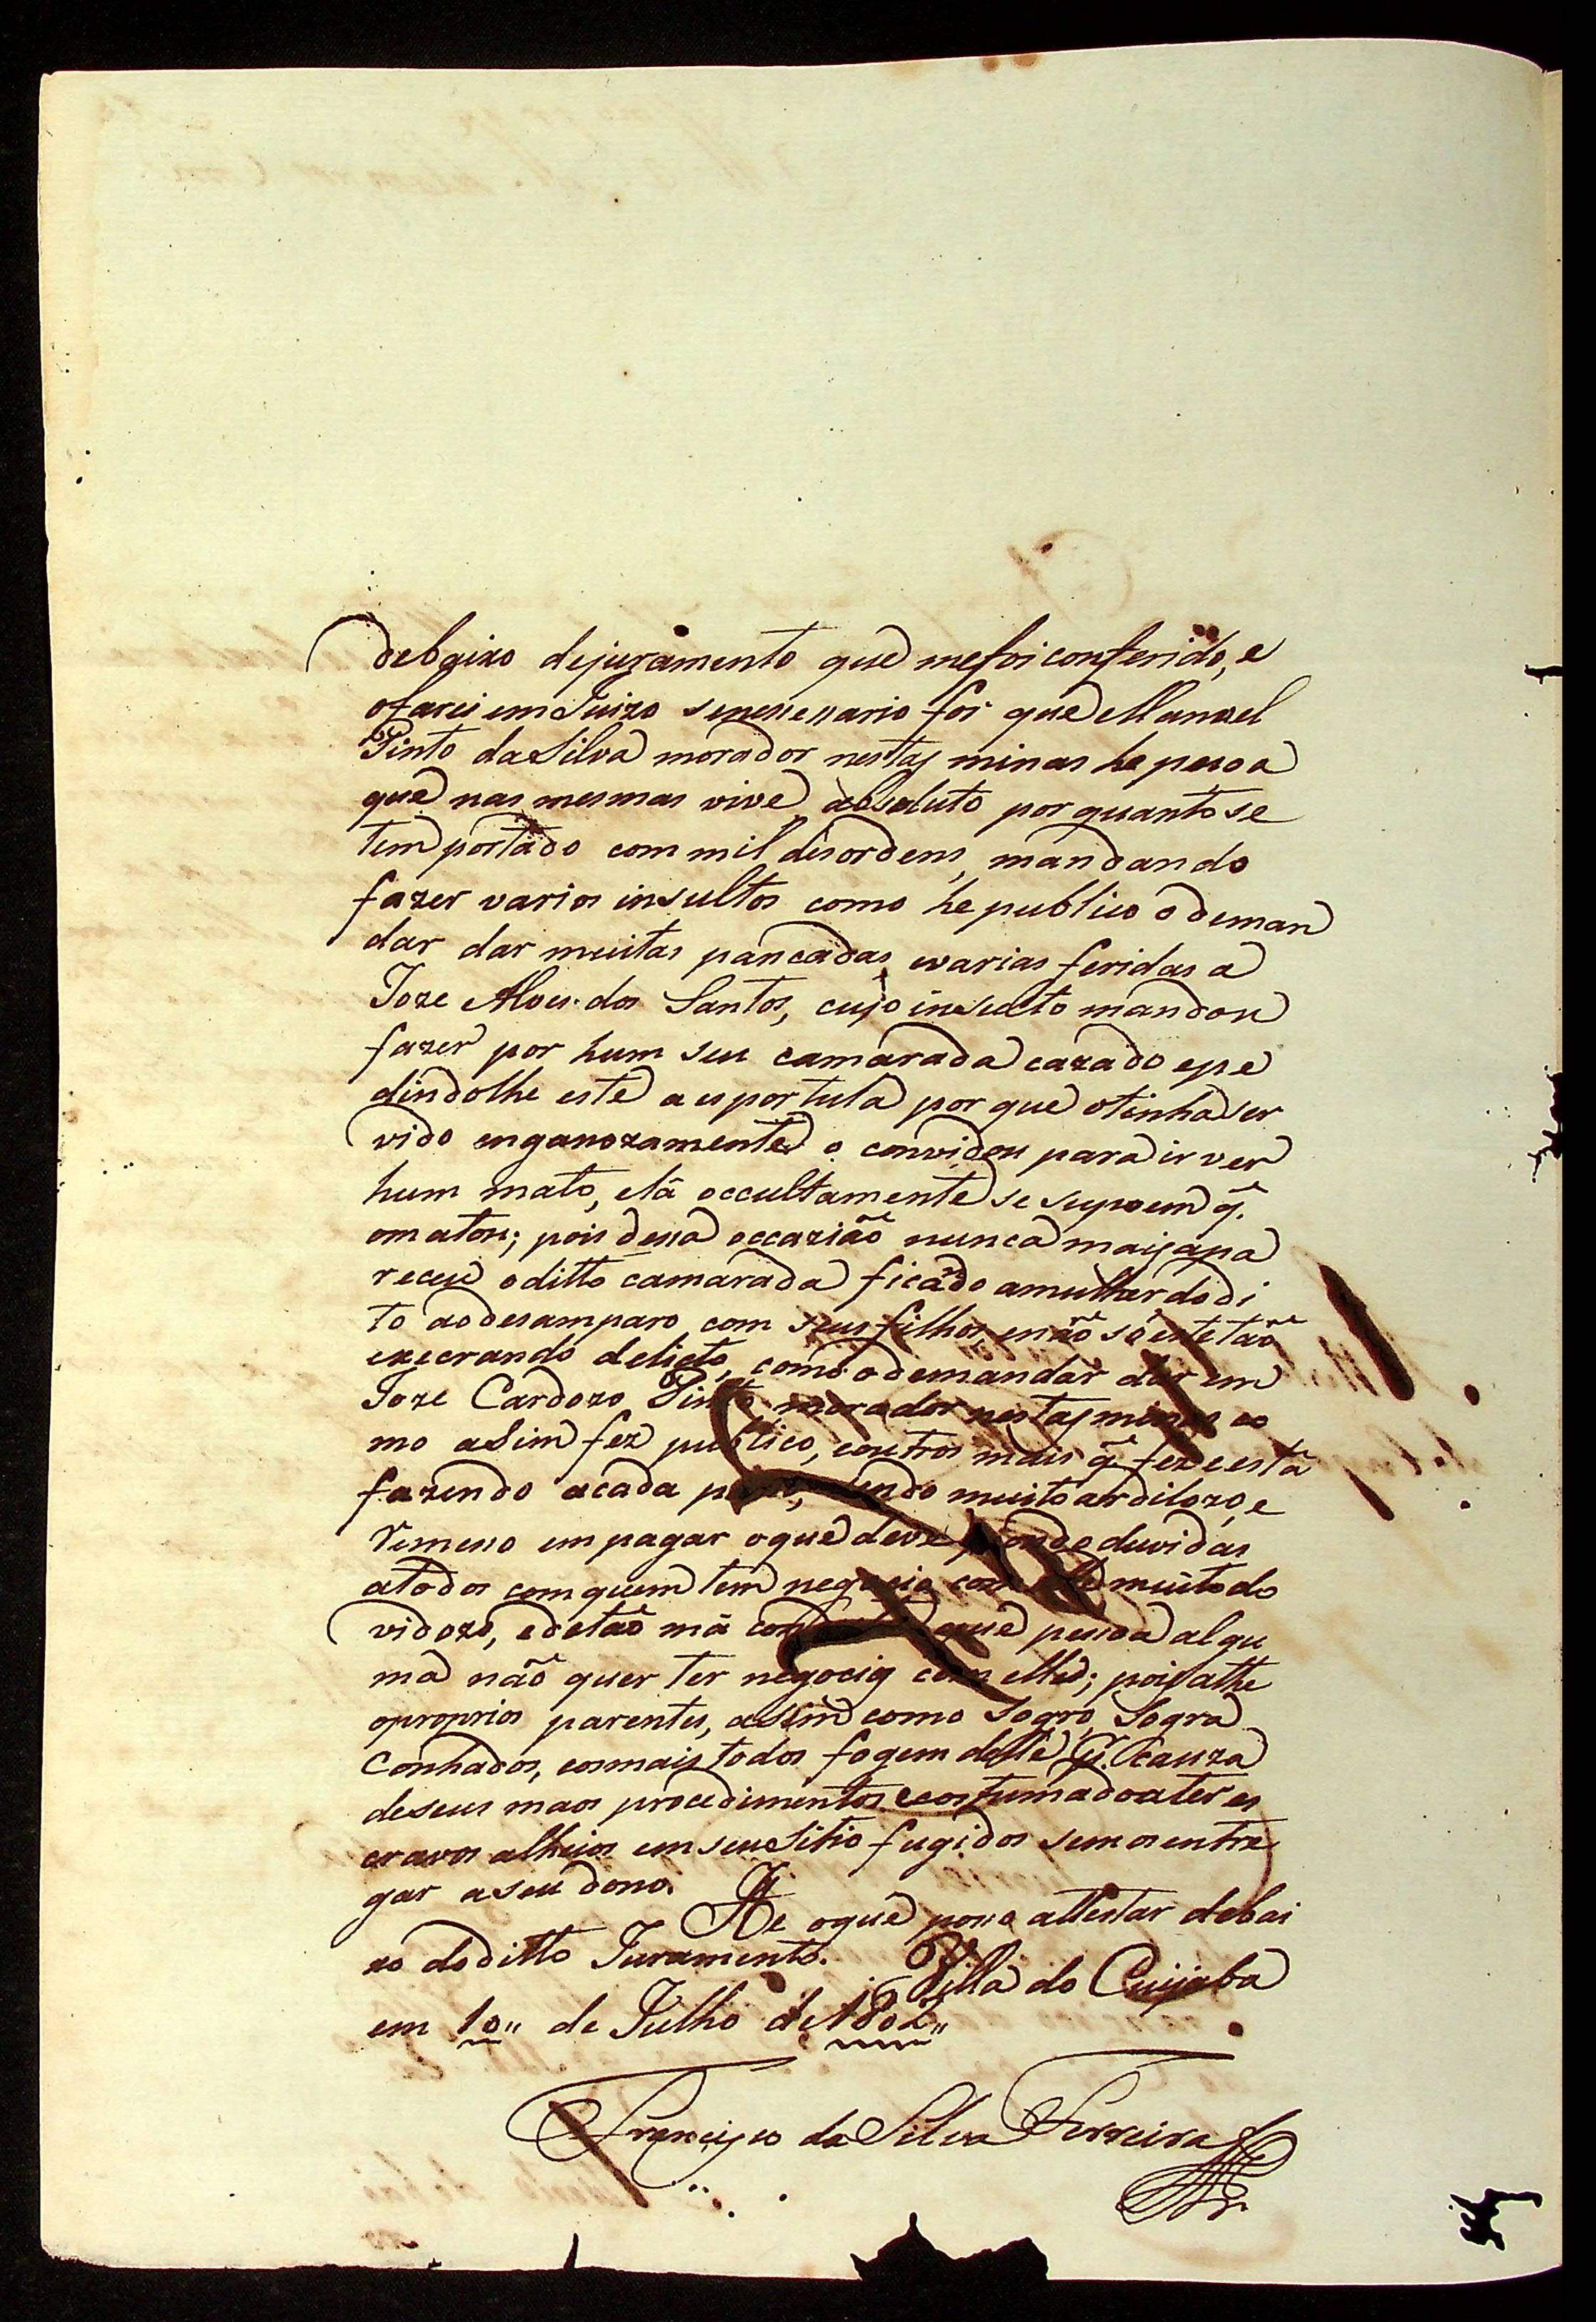 debaixo dejuramento que mefoi conferido, e
ofarei em Juizo senessesario for que Manoel
Pinto daSilva morador nestas minas he pesoa
que nas mesmas vive absoluto por quanto se
tem portado com mil disordens, mandando
fazer varios insultos como he publico o deman
dar dar muitas pancadas, evarias feridas a
Joze Alves dos Santos, cujo insulto mandou
fazer por hum seu camarada cazado epe
dindolhe este a esportula por que otinha ser
vido enganozamente o convidou para ir ver
hum mato, elá occultamente se supoem q̃.
omatou; pois dessa occazião nunca mais apa
receu oditto camarada ficãdo amulher do di
to aodesamparo com seus filhos, enão só este tão
execrando delicto, como odemandar dar em
Joze Cardozo Pinto morador nestas minas co
mo aSim fez publico, eoutros mais q̃ fez e está
fazendo acada paso, sendo muito ardilozo, e
Remeso em pagar oque deve pondo duvidas
atodos comquem tem negocio com elle muito do
vidozo, edetão má que pessoa algu
ma não quer ter negocio com elle; pois athe
oproprios parentes, asSim como Sogro, Sogra
Conhados, eosmais todos fogem delle p.ʳ cauza
deseus maos procedimentos ecostumado ater es
cravos alheios em seu Sitio fugidos sem os entre
gar aseu dono.
He oque poso attestar debai
xo doditto Juramento. Villa do Cuijaba
em 10,, de Julho de 1802,,
Francisco da Silva Ferreira